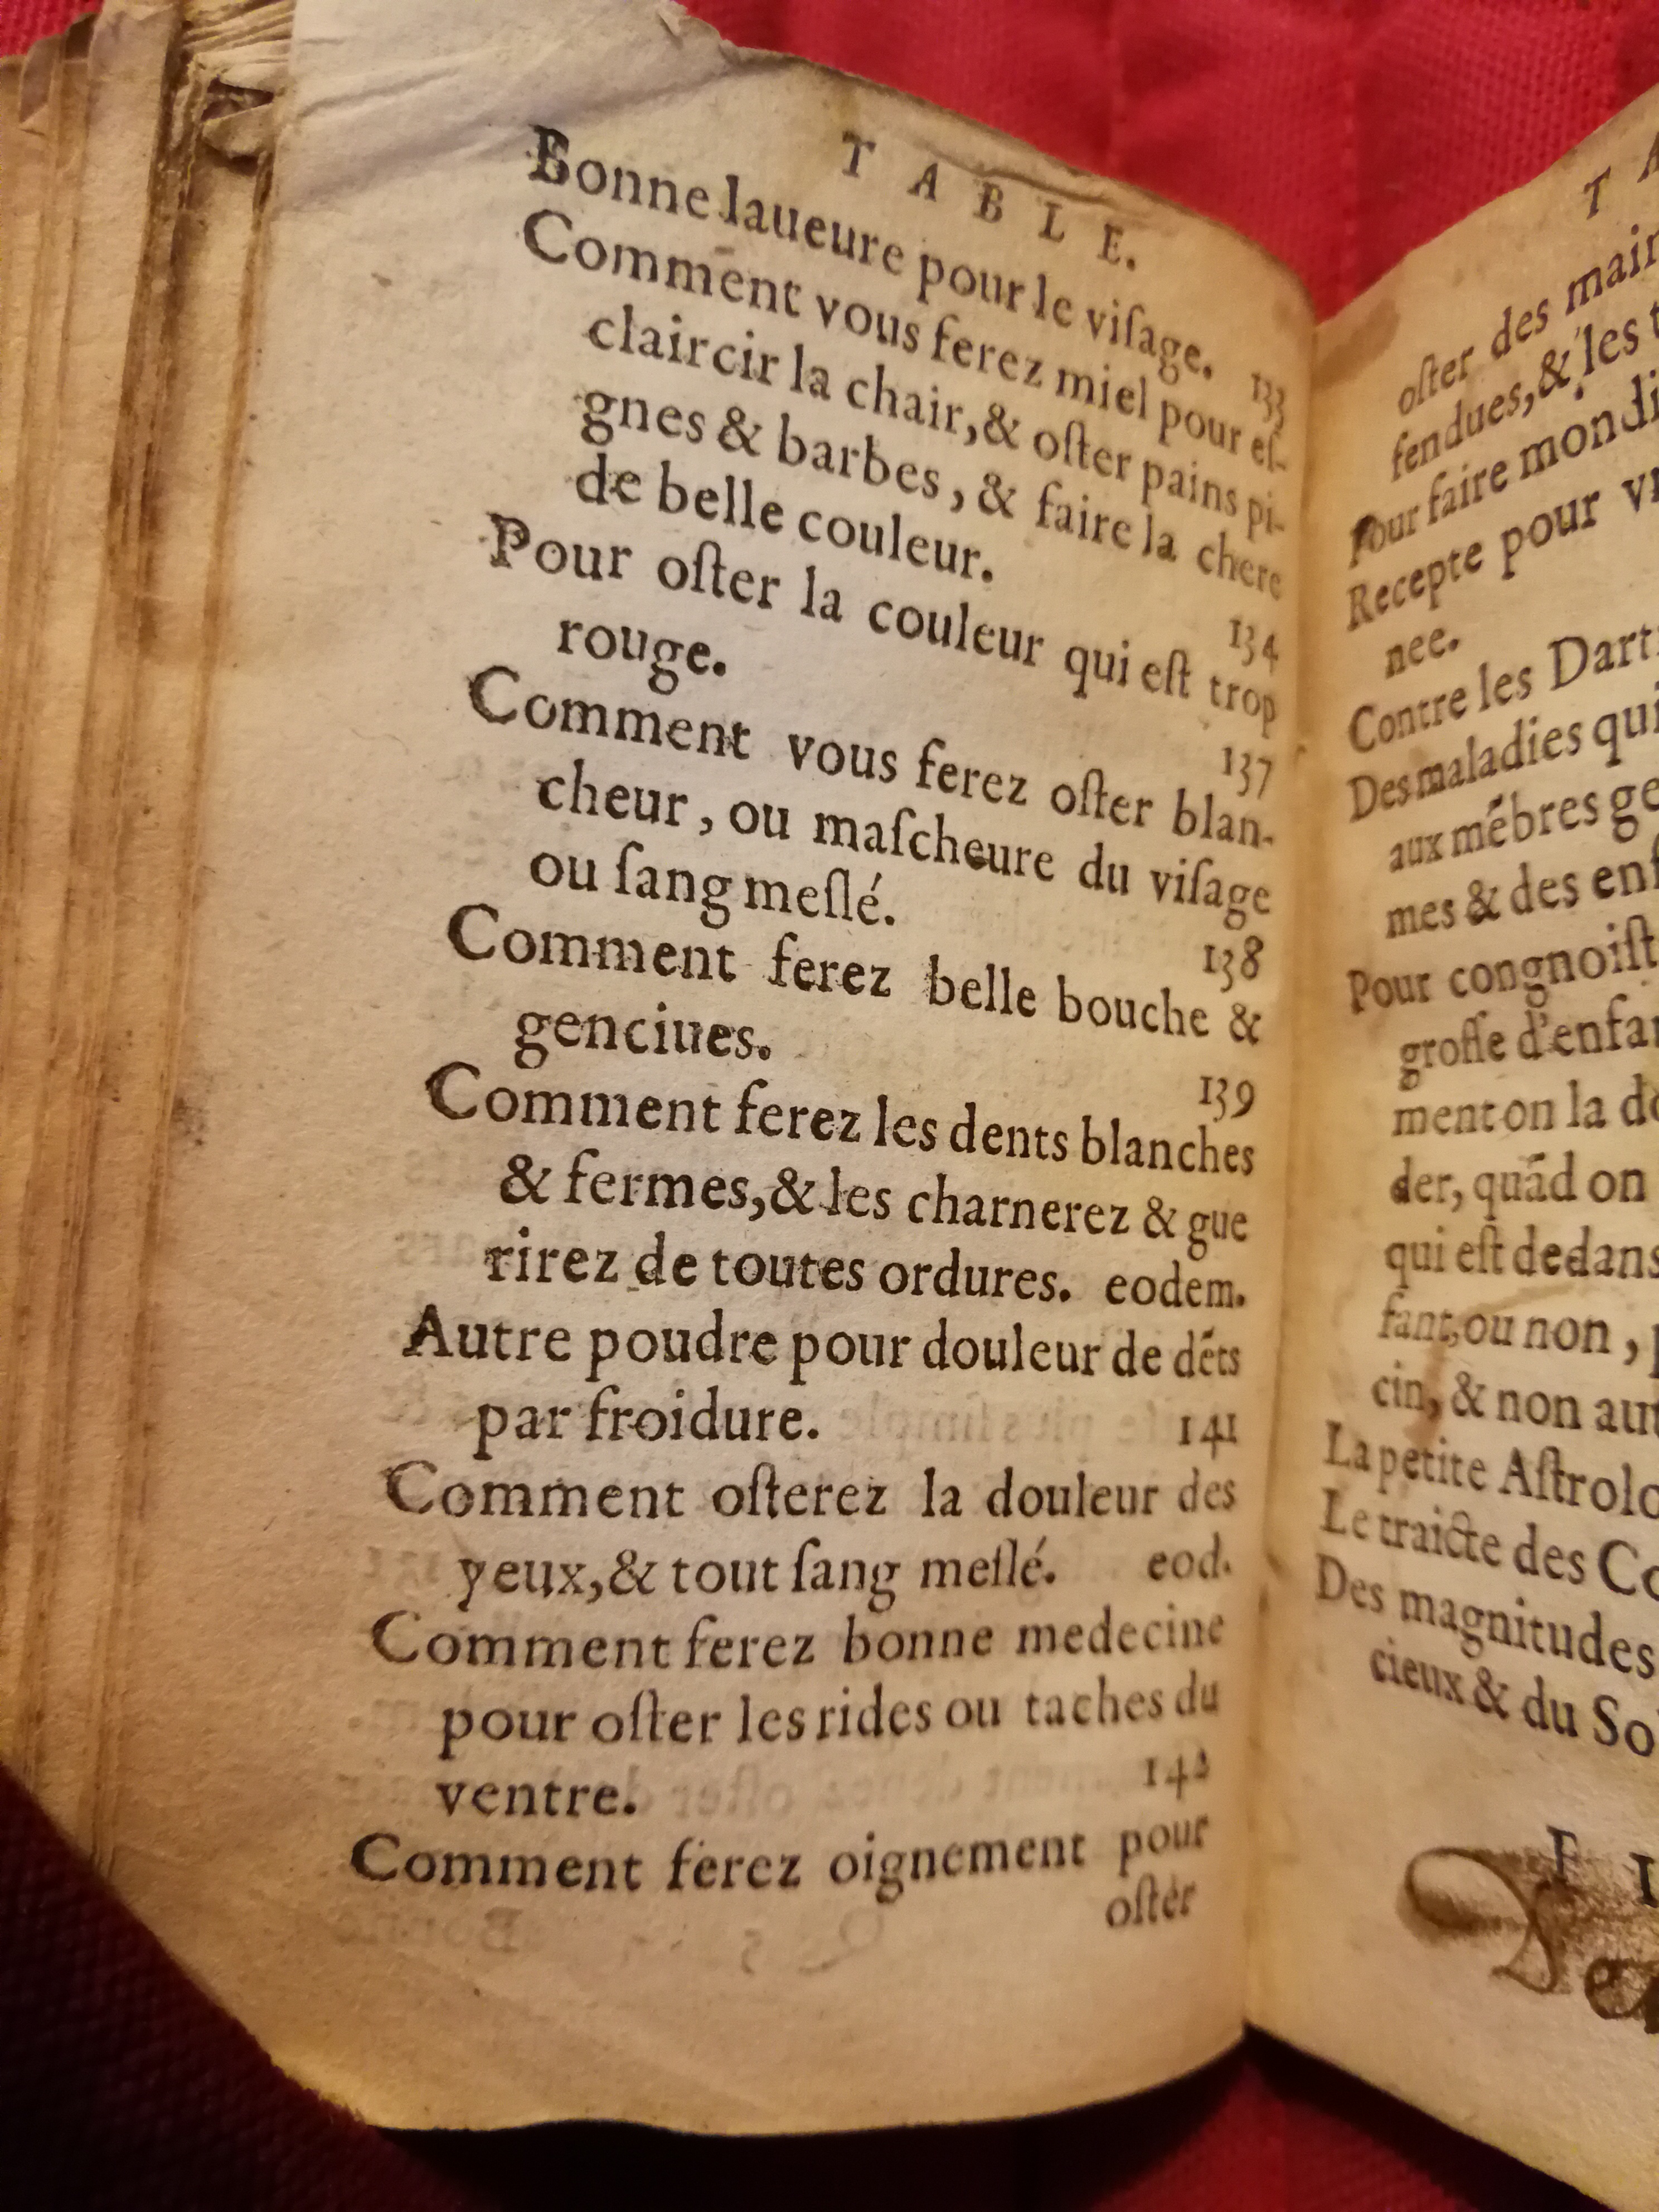 TABLE.
Bonne laueure pour le viſage. 133
Comment vous ferez miel pour eſ-
claircir la chair, & oſter pains pi-
gnes & barbes, & faire la chere
de belle couleur. 134
Pour oſter la couleur qui eſt trop
rouge. 137
Comment vous ferez oſter blan-
cheur, ou maſcheure du viſage
ou ſang meſlé. 138
Comment ferez belle bouche &
genciues. 139
Comment ferez les dents blanches
& fermes, & les charnerez & gue
rirez de toutes ordures. eodem.
Autre poudre pour douleur de dēts
par froidure. 141
Comment oſterez la douleur des
yeux, & tout ſang meſlé. eod.
Comment ferez bonne medecine
pour oſter les rides ou taches du
ventre. 142
Comment ferez oignement pour
oſter
T A
oſter des main
fendues, & les t
Pour faire mondi
Recepte pour vn
nee.
Contre les Dart
Des maladies qui
aux mēbres ge
mes & des enf
Pour congnoiſt
groſſe d'enfan
ment on la do
der, quād on
qui eſt dedans
fant, ou non, p
cin, & non aut
La petite Aſtrolo
Le traicte des Co
Des magnitudes
cieux & du So
F I